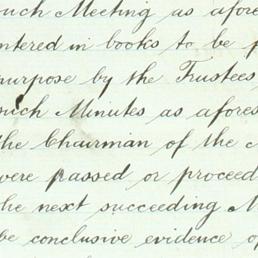 such Meeting as afore
entered in books to be p
purpose by the Trustees
such Minutes as afores
the Chairman of the M
were passed or proceed
the next succeeding M
be conclusive evidence of